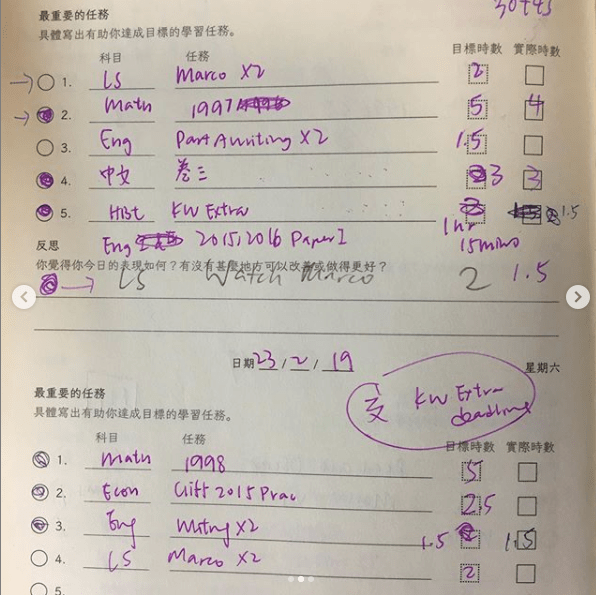 30+45
最重要的任務
具體寫出有助你達成目標的學習任務。
科目 任務 目標時數 實際時數
→ 1. LS Marco X2 2
→ 2. Math 1997 5 4
3. Eng Part A writing X2 1.5
4. 中文 卷三 3 3
5. HBt KW Extra 1.5
1 hr 15 mins
反思 Eng 2015, 2016 Paper I
你覺得你今日的表現如何？有沒有甚麼地方可以改善或做得更好？
→ LS Watch Marco 2 1.5
日期 23 / 2 / 19 星期六
KW Extra deadline
最重要的任務
具體寫出有助你達成目標的學習任務。
科目 任務 目標時數 實際時數
1. Math 1998 5
2. Econ 2015 Prac 2.5
3. Eng X2 1.5 1.5
4. LS Marco X2 2
5.